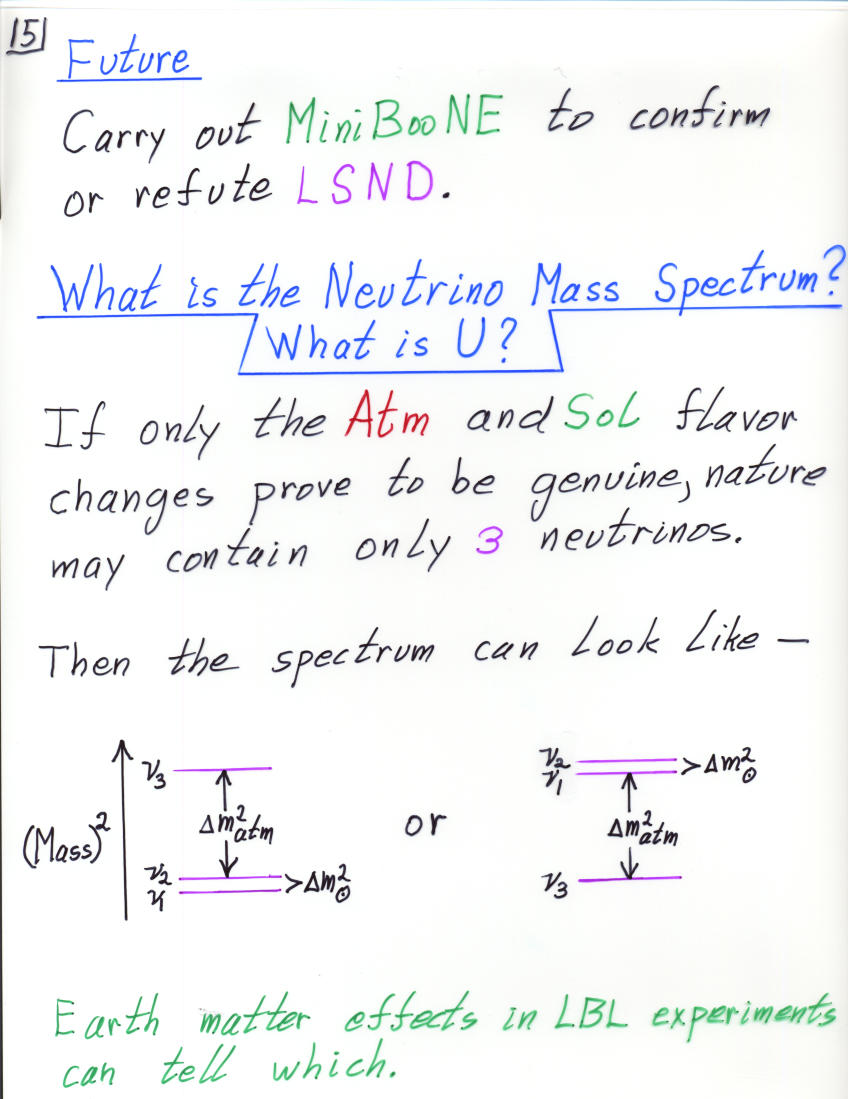 15
Future
Carry out MiniBooNE to confirm
or refute LSND.
What is the Neutrino Mass Spectrum?
What is U?
If only the Atm and Sol flavor
changes prove to be genuine, nature
may contain only 3 neutrinos.
Then the spectrum can look like —
(Mass)²
ν₃
Δm²atm
ν₂
ν₁
>Δm²⊙
or
ν₂
ν₁
>Δm²⊙
Δm²atm
ν₃
Earth matter effects in LBL experiments
can tell which.